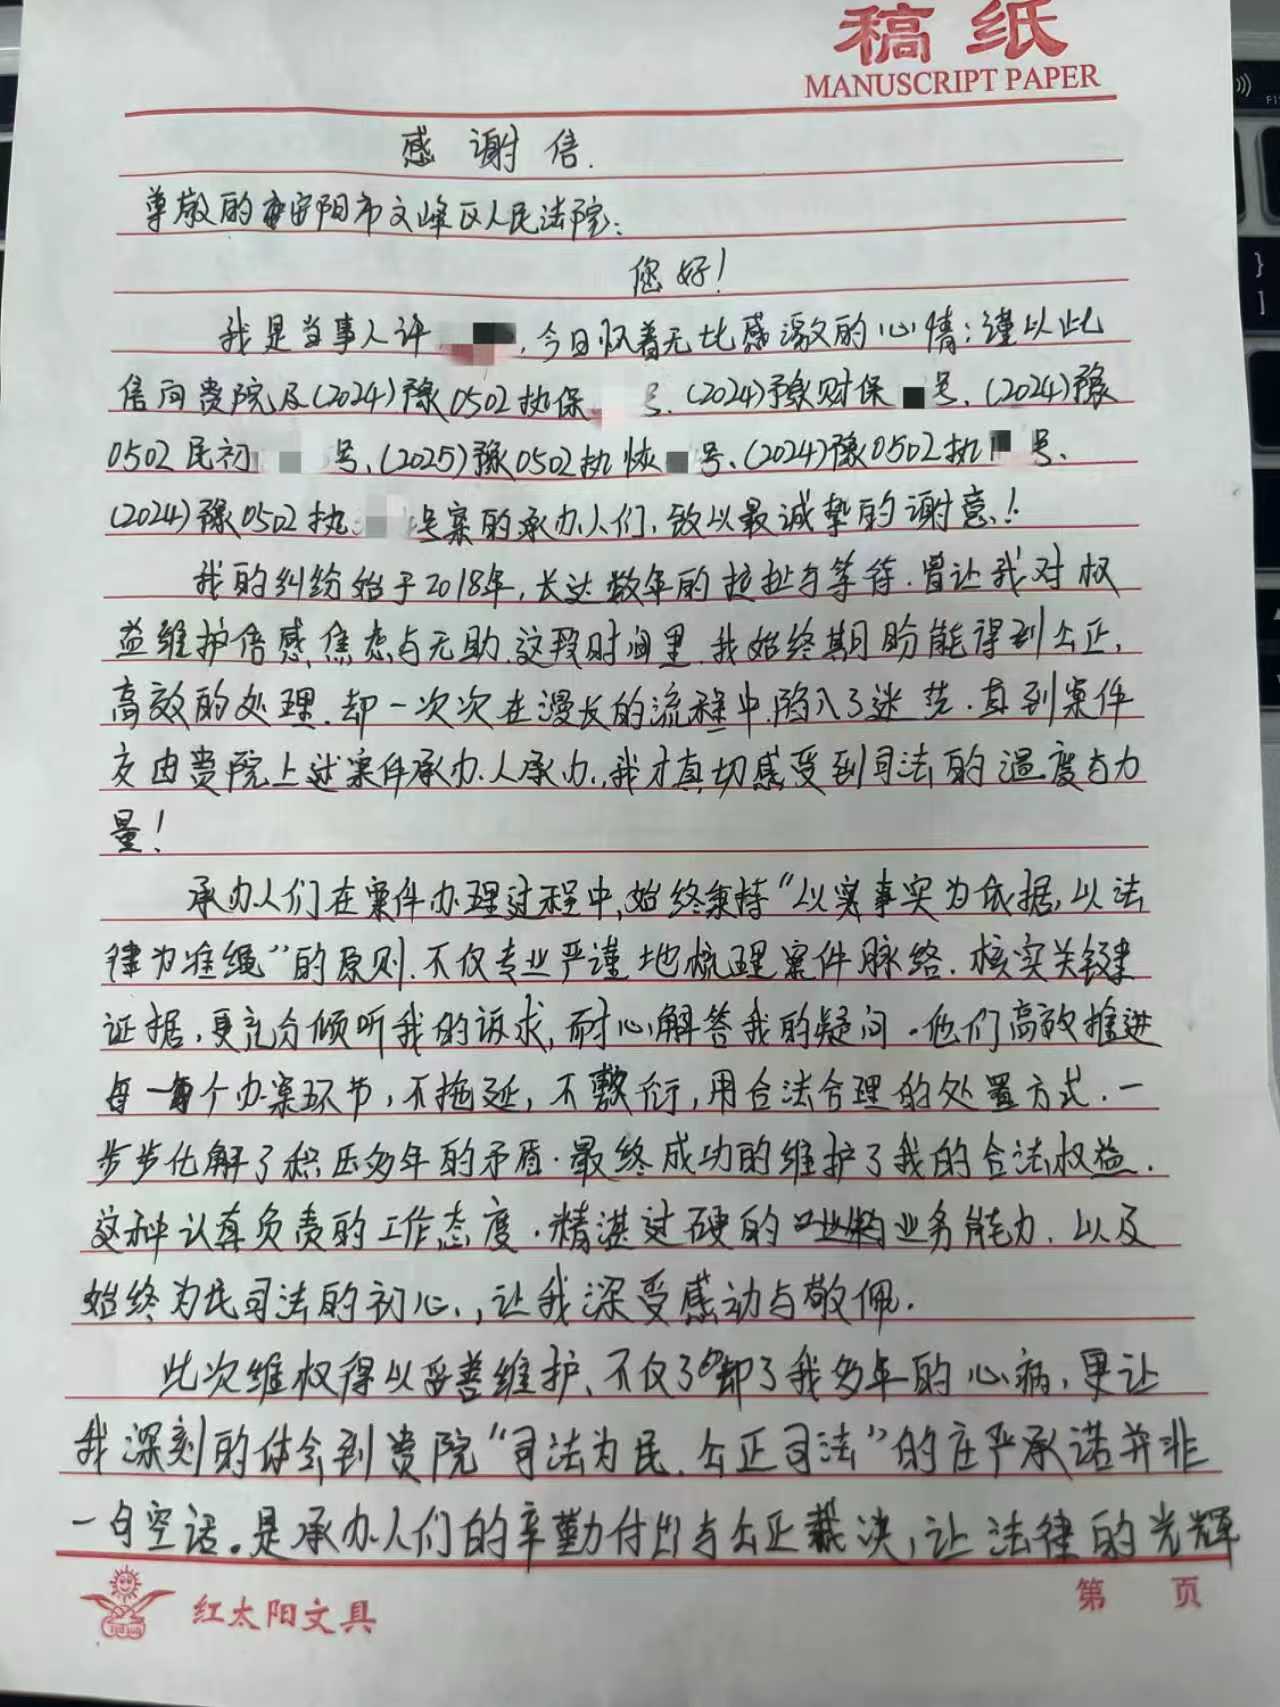 稿纸
MANUSCRIPT PAPER
感谢信.
尊敬的安阳市文峰区人民法院:
您好!
我是当事人许 ,今日怀着无比感激的心情;谨以此
信向贵院及(2024)豫0502执保 号、(2024)豫财保 号、(2024)豫
0502民初 号、(2025)豫0502执恢 号、(2024)豫0502执 号、
(2024)豫0502执 号案的承办人们,致以最诚挚的谢意!
我的纠纷始于2018年,长达数年的拉扯与等待.曾让我对权
益维护倍感焦虑与无助.这段时间里.我始终期盼能得到公正,
高效的处理.却一次次在漫长的流程中陷入了迷茫.直到案件
交由贵院上述案件承办人承办,我才真切感受到司法的温度与力
量!
承办人们在案件办理过程中,始终秉持“以实事实为依据,以法
律为准绳”的原则.不仅专业严谨地梳理案件脉络.核实关键
证据,更充分倾听我的诉求,耐心解答我的疑问.他们高效推进
每一个办案环节,不拖延,不敷衍,用合法合理的处置方式.一
步步化解了积压多年的矛盾.最终成功的维护了我的合法权益.
这种认真负责的工作态度.精湛过硬的业务能力.以及
始终为民司法的初心,让我深受感动与敬佩.
此次维权得以妥善维护、不仅了却了我多年的心病,更让
我深刻的体会到贵院“司法为民.公正司法”的庄严承诺并非
一句空话。是承办人们的辛勤付出与公正裁决,让法律的光辉
红太阳文具
第 页